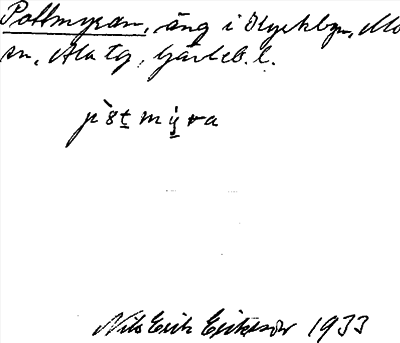 Pottmyran, äng i Kyrkbyn, Mo
sn, Ala tg, Gävleb. l.
Nils Erik Eriksson 1933